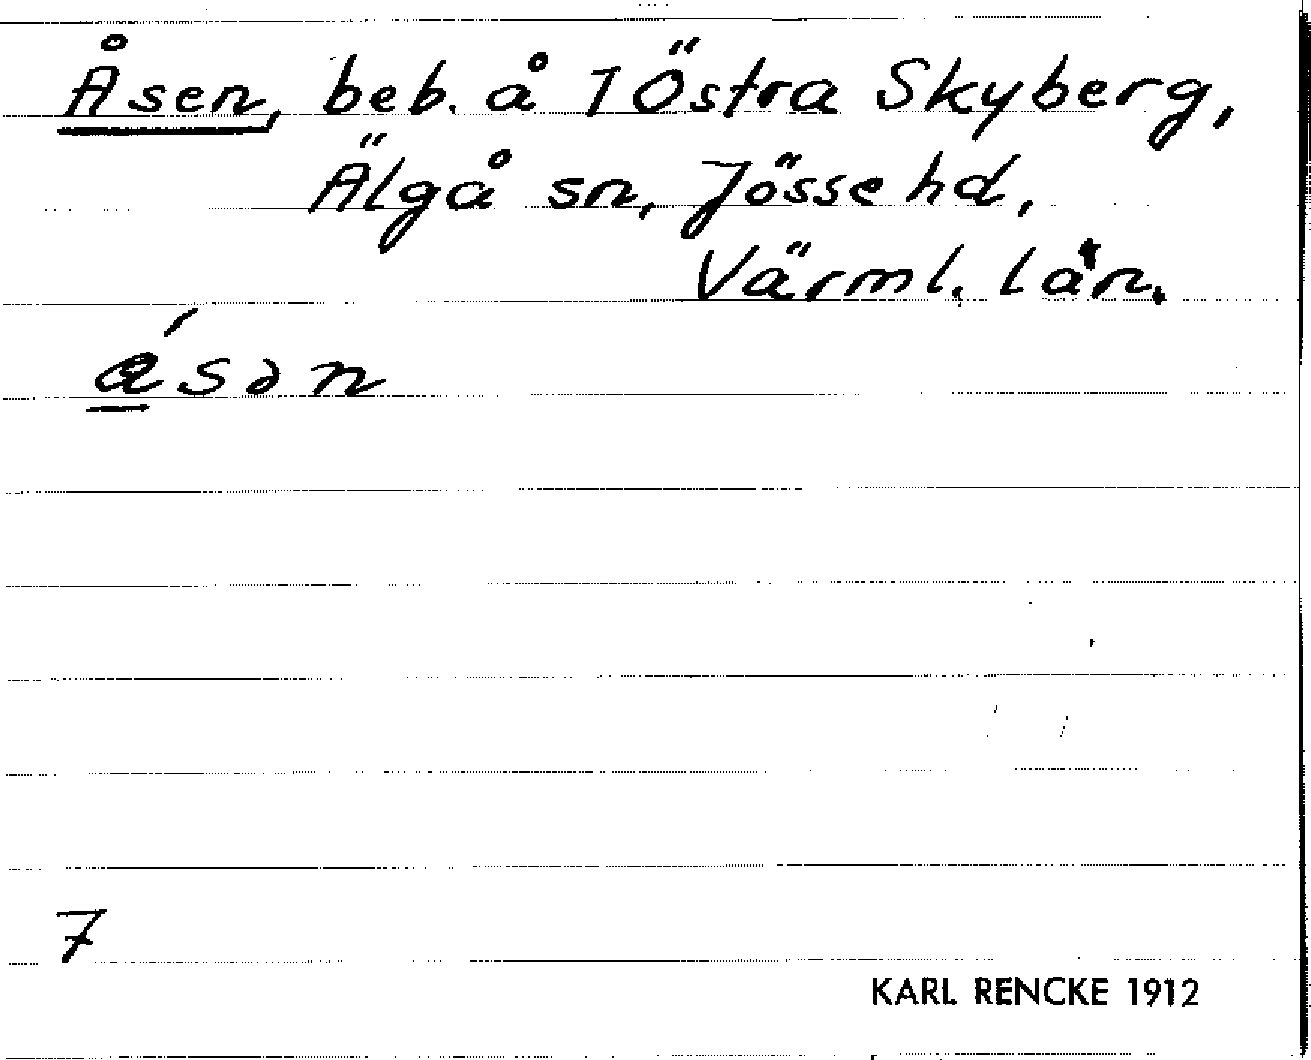 Åsen, beb. å 1 Östra Skyberg,
Älgå sn, Jösse hd,
Värml. län.
a̲´sən
7
KARL RENCKE 1912